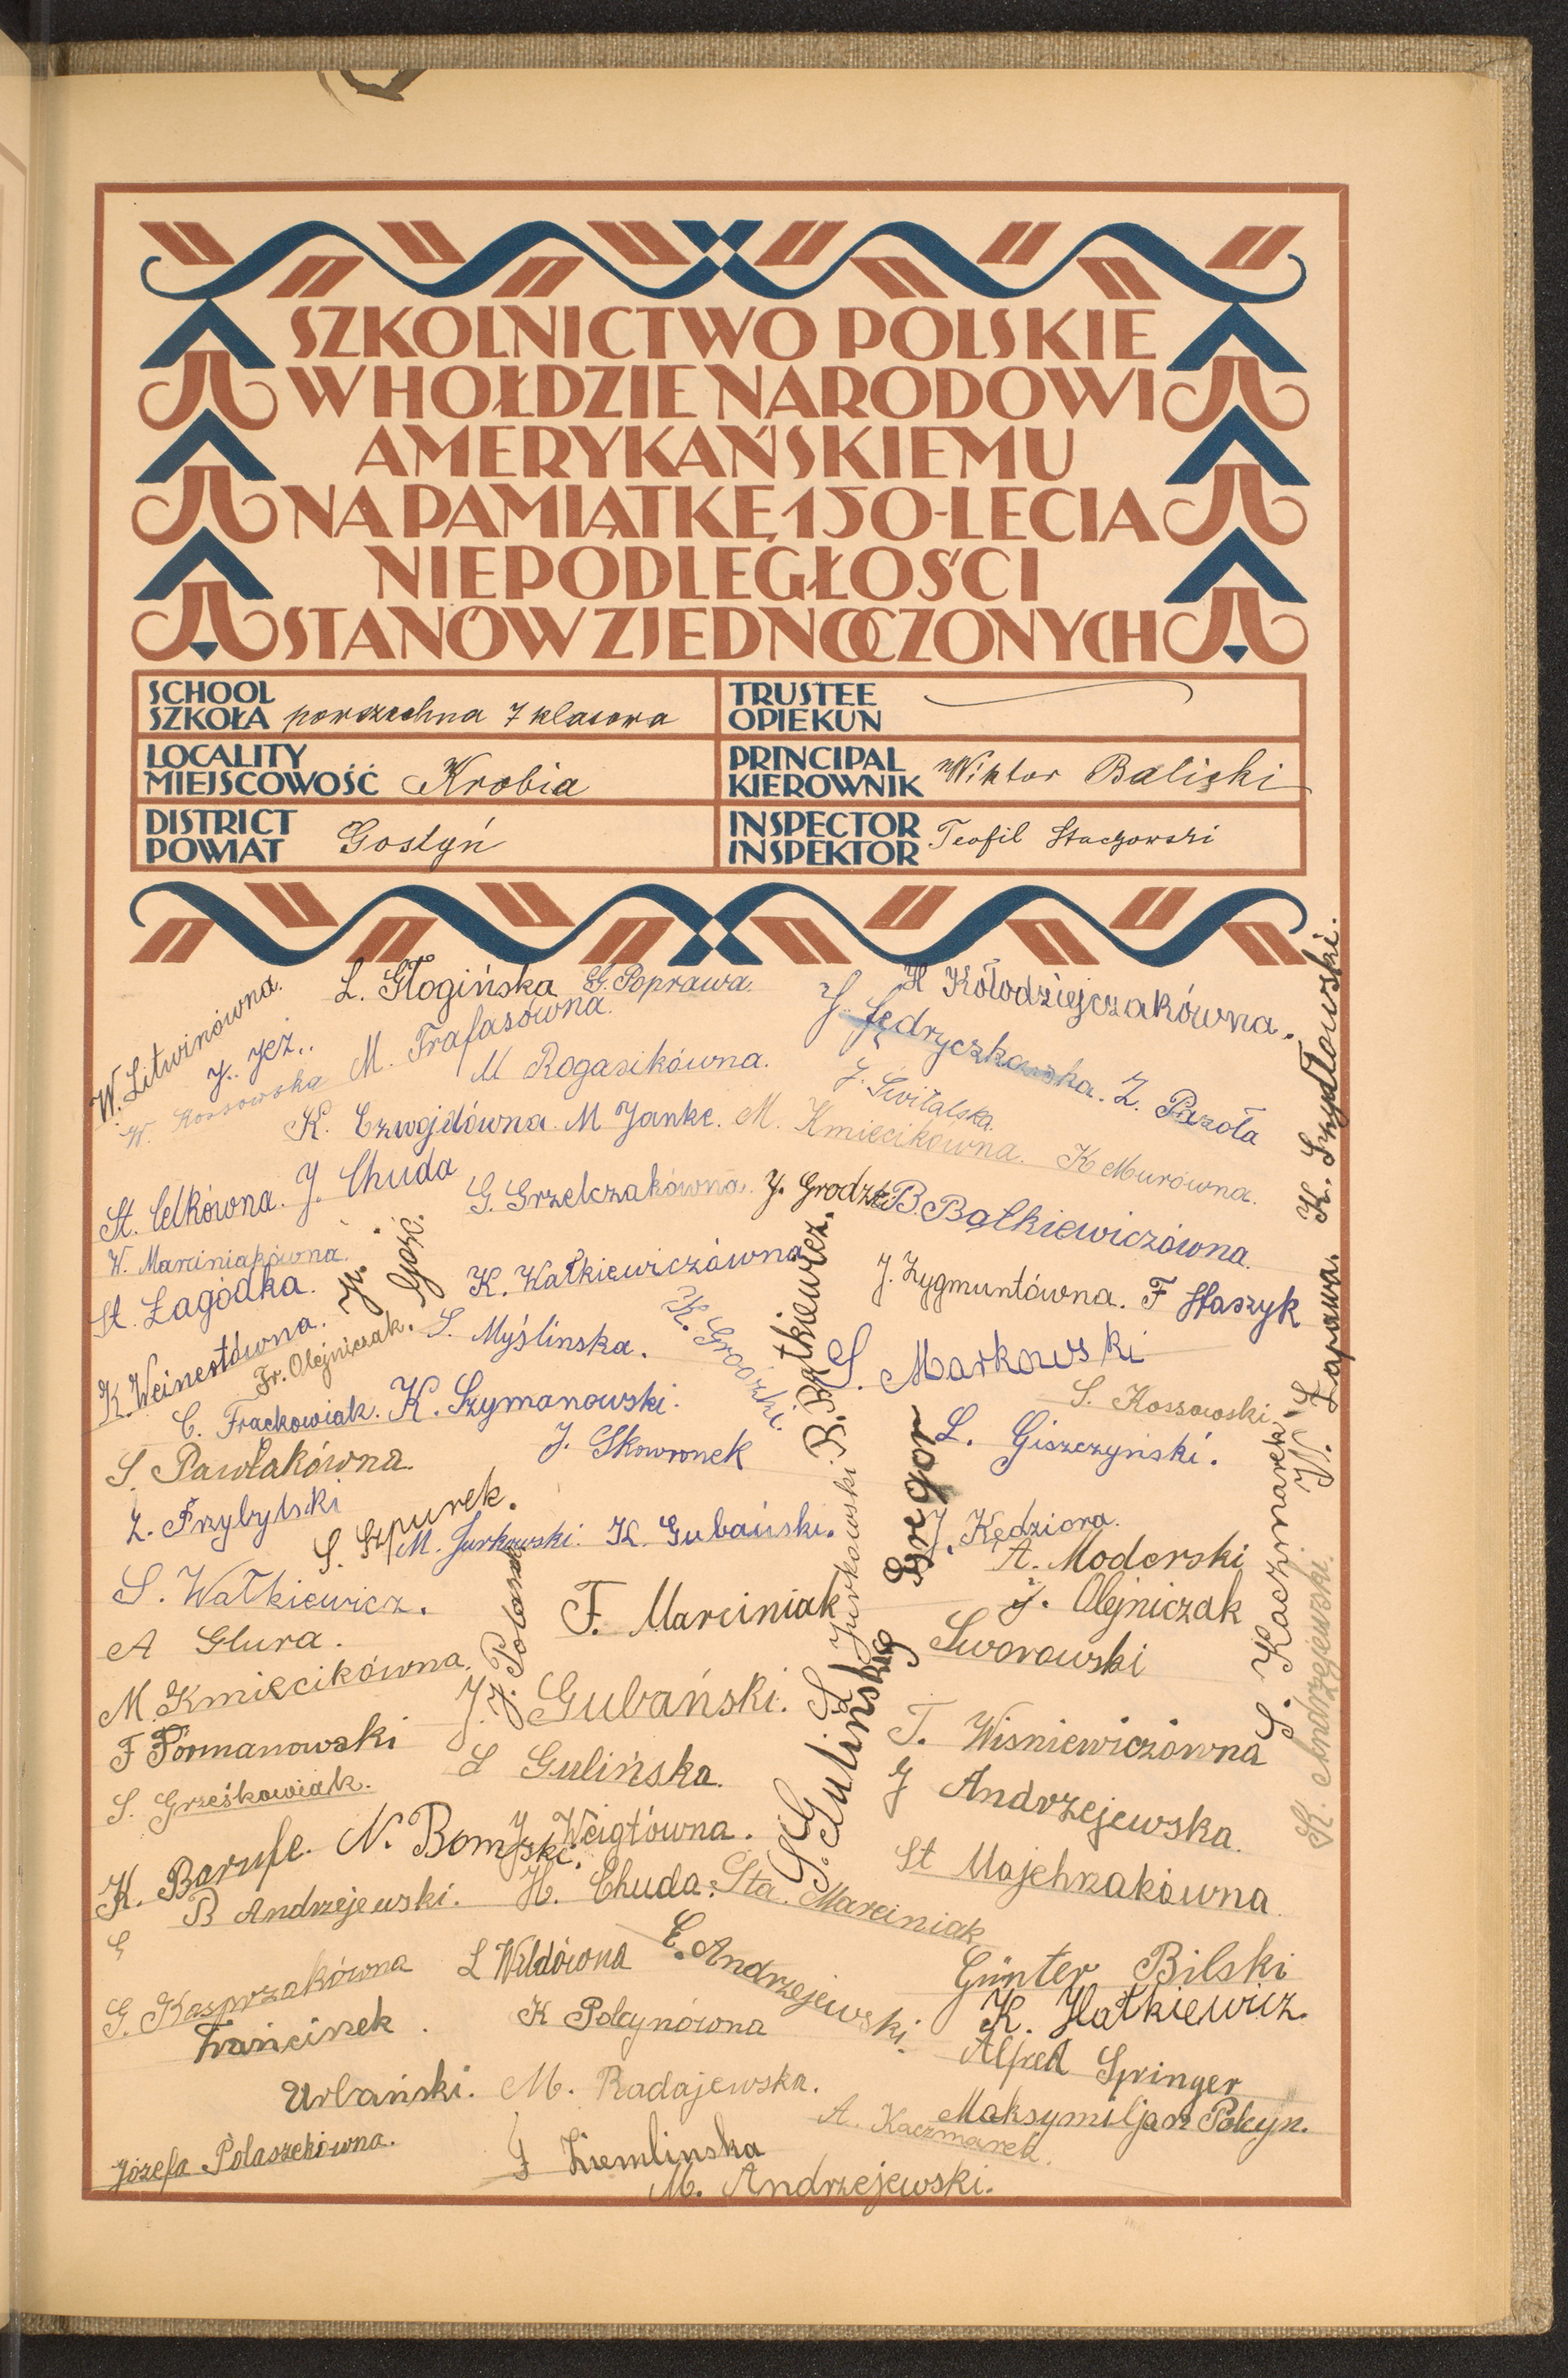 SZKOLNICTWO POLSKIE
W HOŁDZIE NARODOWI
AMERYKAŃSKIEMU
NA PAMIĄTKĘ 150-LECIA
NIEPODLEGŁOŚCI
STANÓW ZJEDNOCZONYCH
SCHOOL
SZKOŁA powszechna 7 klasowa
TRUSTEE
OPIEKUN
LOCALITY
MIEJSCOWOŚĆ Krobia
PRINCIPAL
KIEROWNIK Wiktor Baliński
DISTRICT
POWIAT Gostyń
INSPECTOR
INSPEKTOR Teofil Stachowski
W. Litwinówna.
L. Głogińska
G. Poprawa.
H Kołodziejczakówna.
J. Jeż..
M. Trafasówna.
J. Jędryczkowska.
W. Kossowska
M Rogasikówna.
J. Świtalska.
Z. Pazoła
K. Czwojdówna.
M Janke.
M. Kmiecikówna.
K Murówna.
K. Szydłowski.
St. Celkówna.
J. Chuda
G. Grzelczakówna.
J. Grodzki
B. Bątkiewiczówna.
W. Marciniakówna.
St. Łagódka.
J. Gość.
K. Watkiewiczówna
J. Zygmuntówna.
F Staszyk
K. Weinertówna.
Fr. Olejniczak.
S. Myślinska.
K. Grodzki.
B. Bątkiewicz.
S. Markowski
S. Kossowski.
W. Łapawa.
C. Frąckowiak.
K. Szymanowski.
J. Skowronek
L. Giszczyński.
S. Pawlakówna
Z. Przybylski
S. Szpurek.
M. Jurkowski.
K. Gubański.
S. Jurkowski
Gregor
J. Kędziora.
A. Moderski
S. Kaczmarek
S. Watkiewicz.
F. Marciniak
J. Olejniczak
A Glura.
J. Polaszek
Sworowski
K. Andrzejewski.
M. Kmiecikówna.
J. Gubański.
F Formanowski
S. Guliński
T. Wisniewiczówna
S. Grześkowiak.
S Gulińska.
J Andrzejewska.
K. Barufe.
N. Bomski.
J. Weigtówna.
St Majchrzakówna
B Andrzejewski.
H. Chuda.
Sta. Marciniak
G. Kasprzakówna
L Wildówna
C. Andrzejewski.
Günter Bilski
Franciszek
Urbański.
K Polcynówna
K. Hatkiewicz.
Alfred Springer
M. Radajewska.
A. Kaczmarek.
Maksymiljan Polcyn.
Józefa Polaszekówna.
F Ziemlinska
M. Andrzejewski.